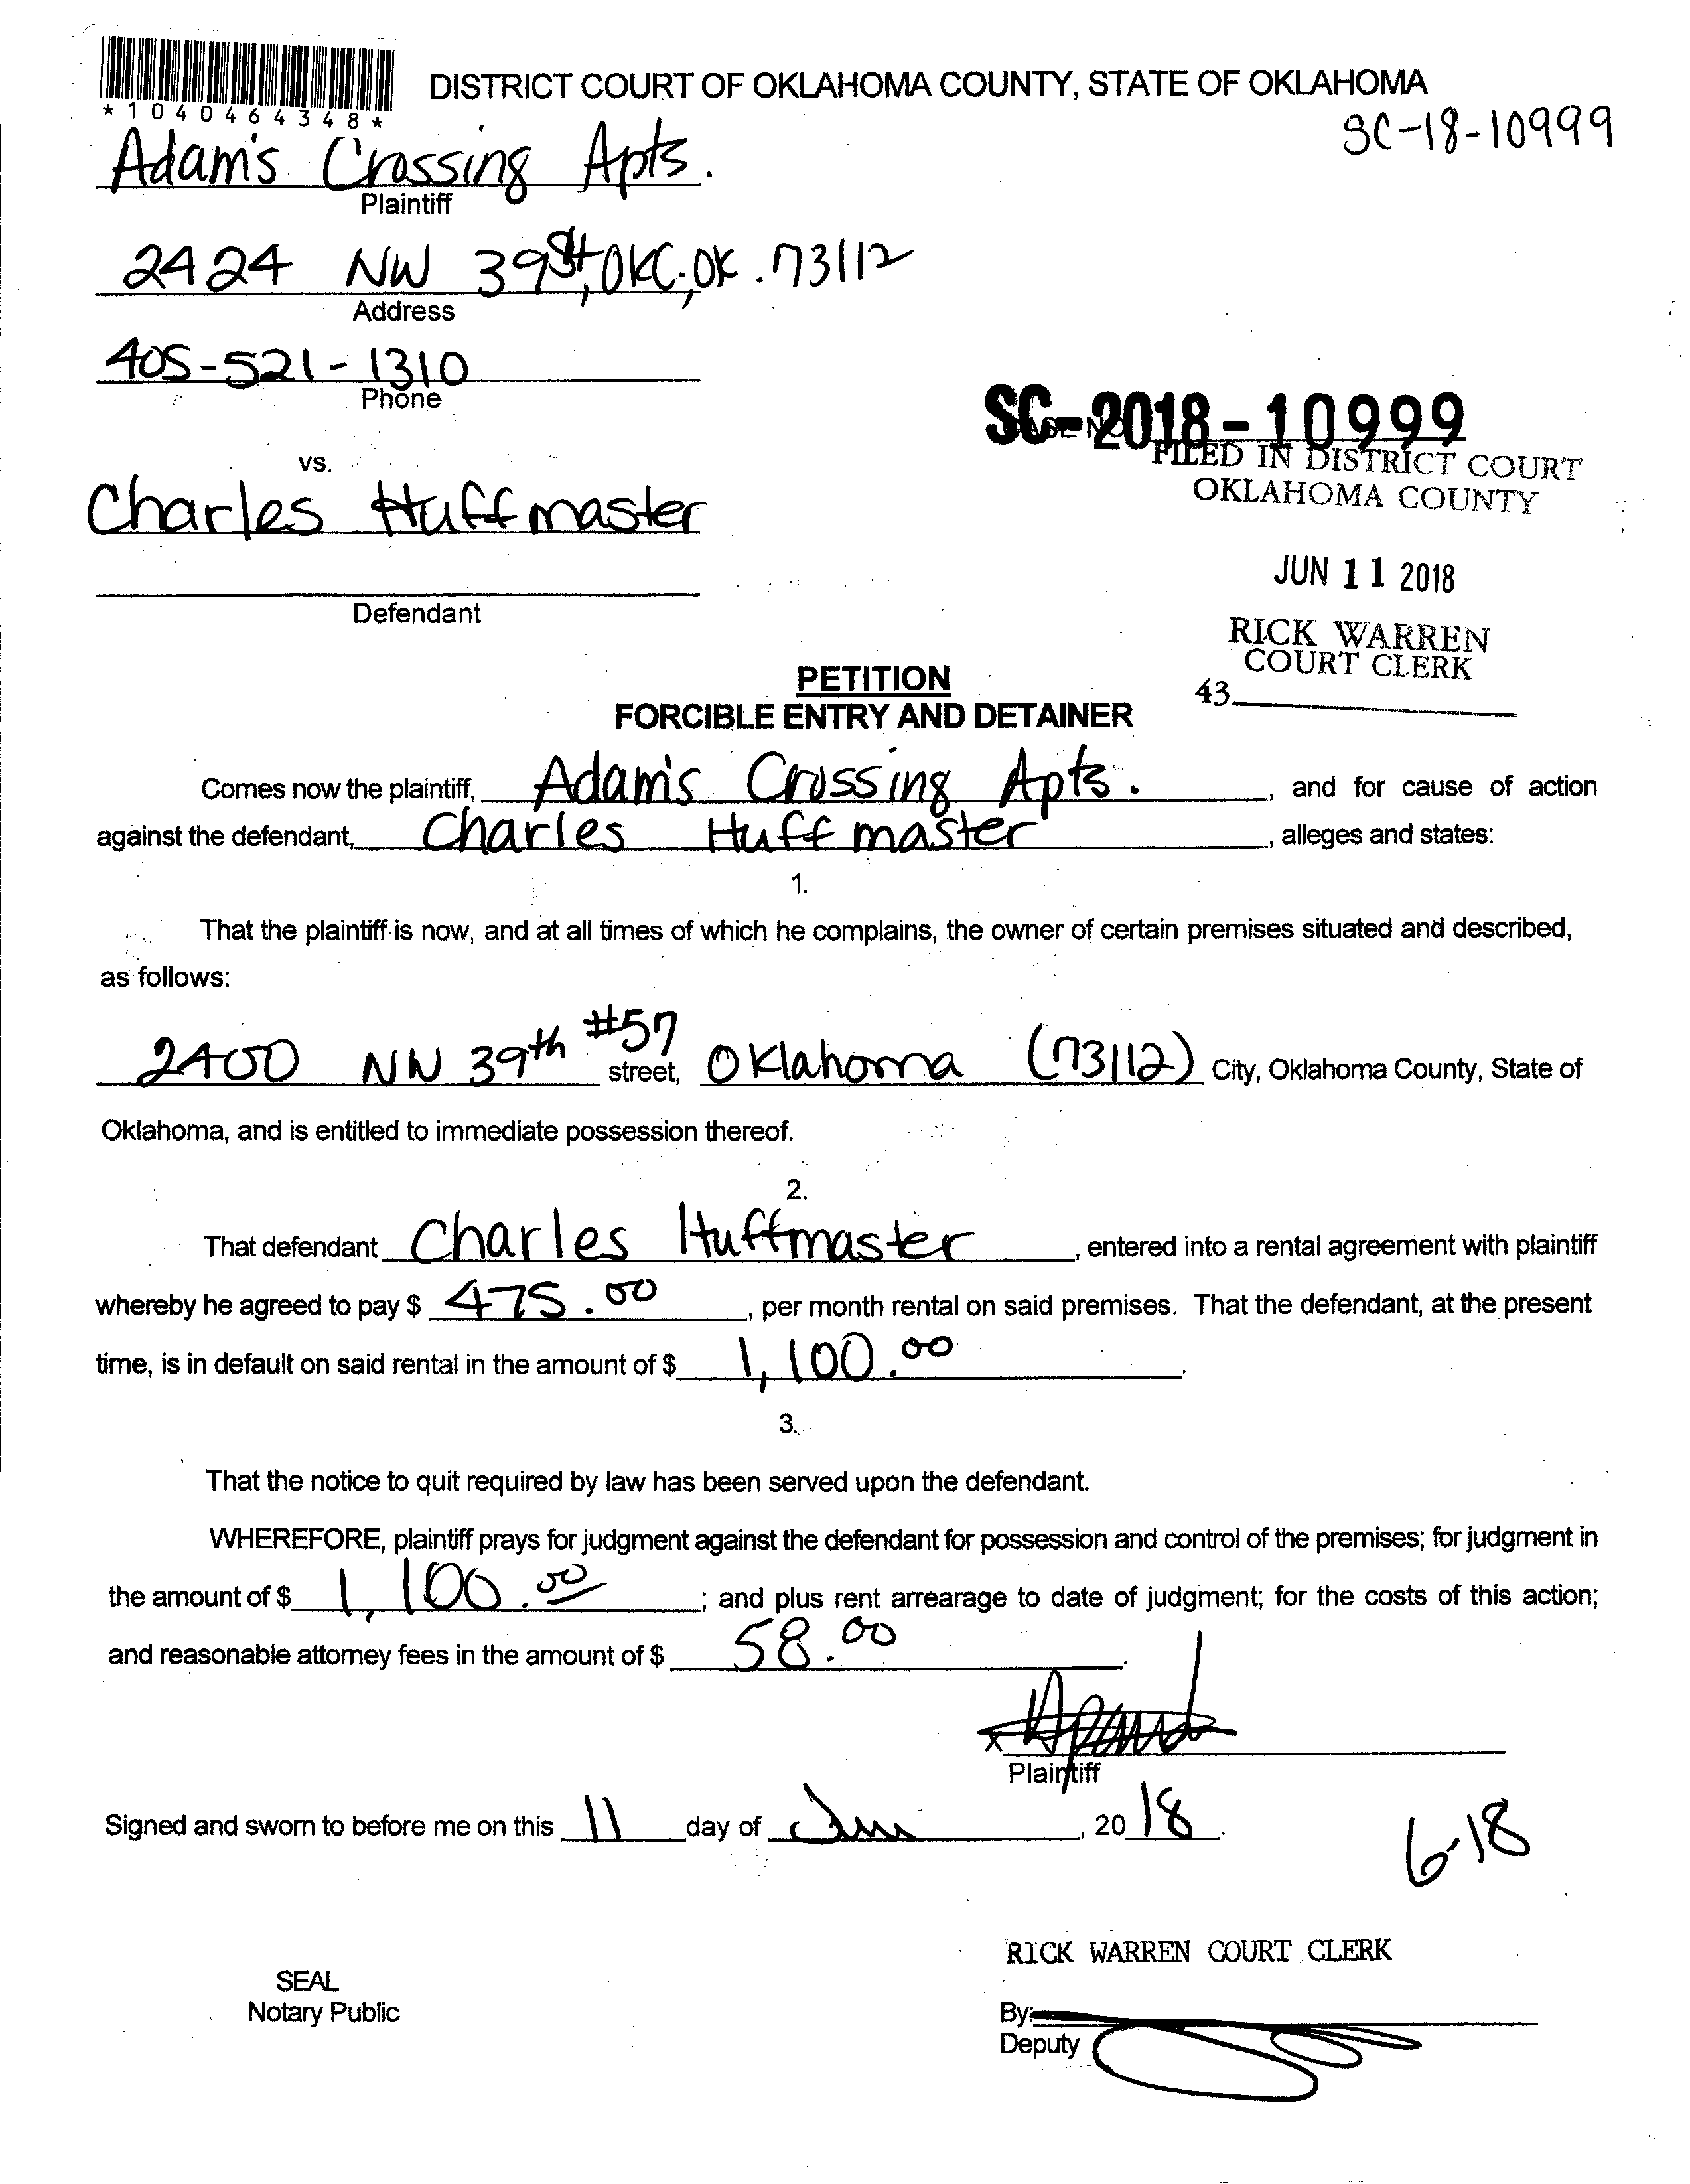 *1040464348*
DISTRICT COURT OF OKLAHOMA COUNTY, STATE OF OKLAHOMA
SC-18-10999
Adam's Crossing Apts.
Plaintiff
2424 NW 39st, OKC, OK. 73112
Address
405-521-1310
Phone
SC-2018-10999
FILED IN DISTRICT COURT
OKLAHOMA COUNTY
vs.
Charles Huffmaster
JUN 11 2018
Defendant
RICK WARREN
COURT CLERK
43
PETITION
FORCIBLE ENTRY AND DETAINER
Comes now the plaintiff, Adam's Crossing Apts. , and for cause of action
against the defendant, Charles Huffmaster , alleges and states:
1.
That the plaintiff is now, and at all times of which he complains, the owner of certain premises situated and described,
as follows:
2400 NW 39th #57 street, Oklahoma (73112) City, Oklahoma County, State of
Oklahoma, and is entitled to immediate possession thereof.
2.
That defendant Charles Huffmaster , entered into a rental agreement with plaintiff
whereby he agreed to pay $ 475.00 , per month rental on said premises. That the defendant, at the present
time, is in default on said rental in the amount of $ 1,100.00 .
3.
That the notice to quit required by law has been served upon the defendant.
WHEREFORE, plaintiff prays for judgment against the defendant for possession and control of the premises; for judgment in
the amount of $ 1,100.00 ; and plus rent arrearage to date of judgment; for the costs of this action;
and reasonable attorney fees in the amount of $ 58.00 .
x
Plaintiff
Signed and sworn to before me on this 11 day of Jun , 20 18 .
6-18
RICK WARREN COURT CLERK
SEAL
Notary Public
By:
Deputy